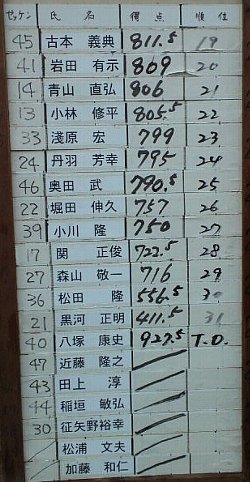 ゼッケン 氏 名 得点 順位
45 古本 義典 811.5 19
41 岩田 有示 809 20
14 青山 直弘 806 21
13 小林 修平 805.5 22
33 淺原 宏 799 23
24 丹羽 芳幸 795 24
46 奥田 武 790.5 25
22 堀田 伸久 757 26
39 小川 隆 750 27
17 関 正俊 722.5 28
27 森山 敬一 716 29
36 松田 隆 556.5 30
21 黒河 正明 411.5 31
40 八塚 康史 927.5 T.O.
47 近藤 隆之
43 田上 淳
44 稲垣 敏弘
30 征矢野裕幸
松浦 文夫
加藤 和仁